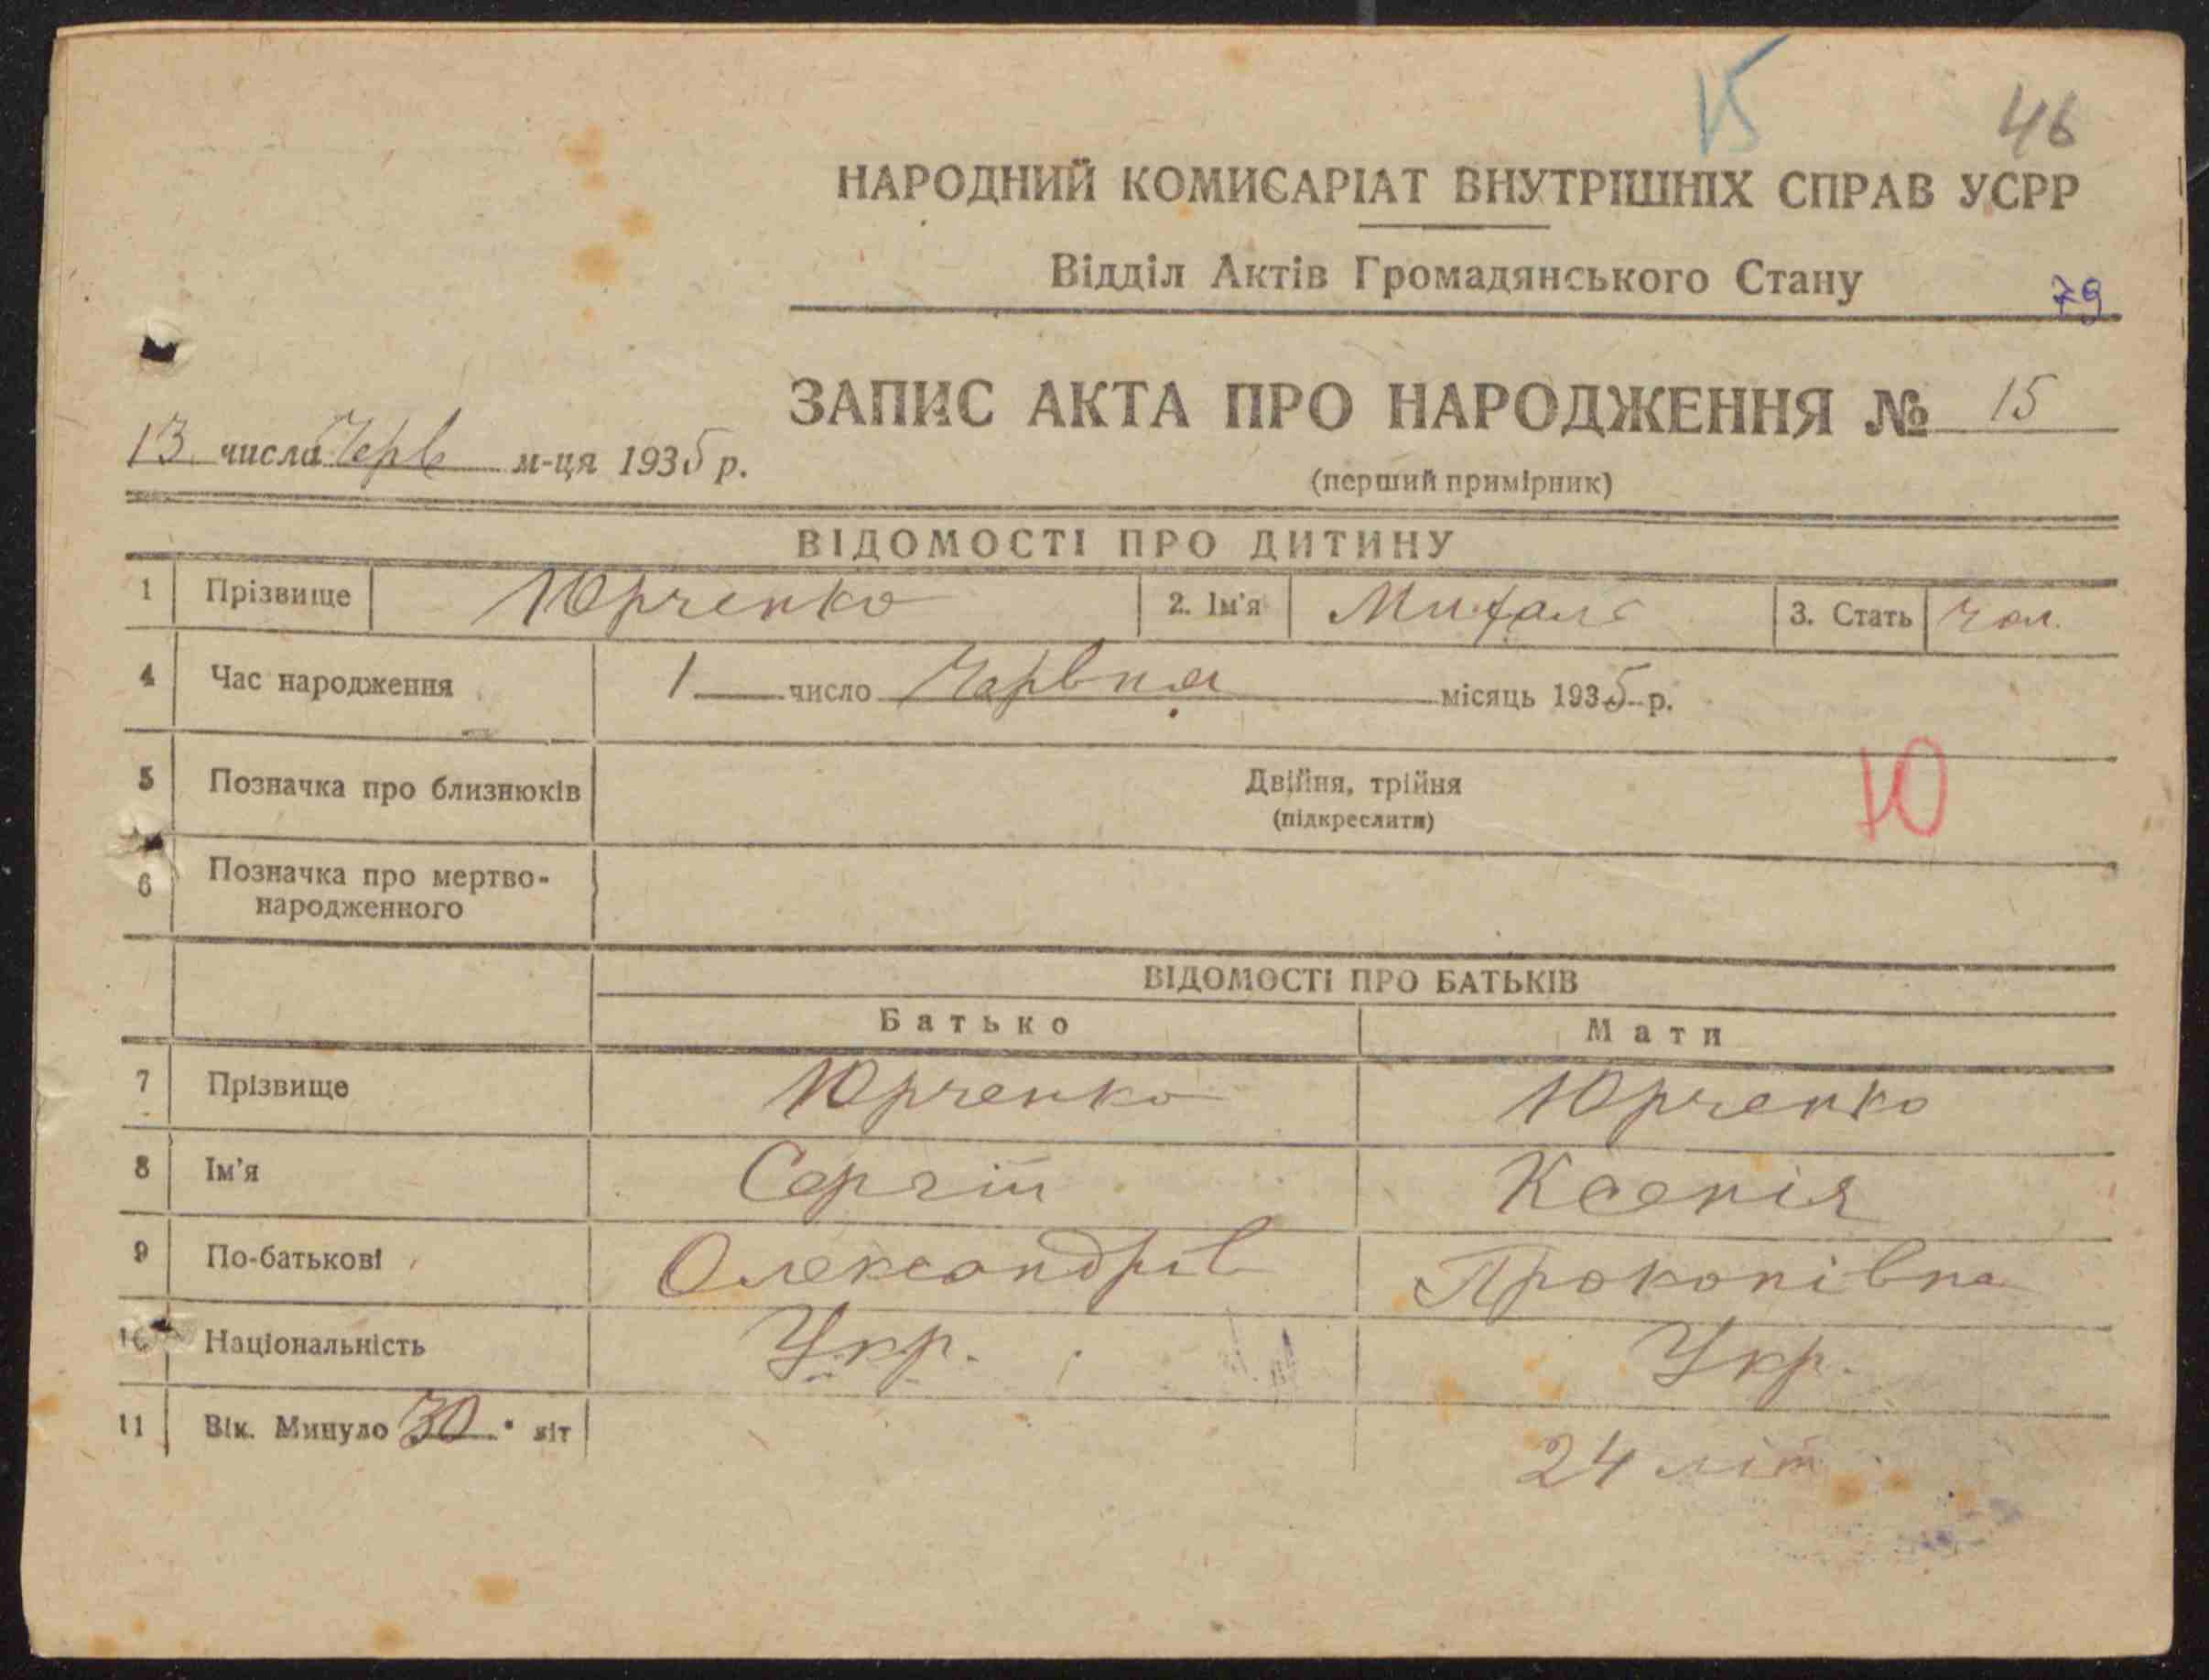 15 46
НАРОДНИЙ КОМИСАРІАТ ВНУТРІШНІХ СПРАВ УСРР
Відділ Актів Громадянського Стану
79
ЗАПИС АКТА ПРО НАРОДЖЕННЯ № 15
13 числа Черв м-ця 1935 р.
(перший примірник)
ВІДОМОСТІ ПРО ДИТИНУ
1 Прізвище Юрченко 2. Ім'я 3. Стать чол.
4 Час народження 1 число Червня місяць 1935 р.
5 Позначка про близнюків Двійня, трійня
(підкреслити)
Ю
6 Позначка про мертво-
народженного
ВІДОМОСТІ ПРО БАТЬКІВ
Батько Мати
7 Прізвище Юрченко Юрченко
8 Ім'я Сергій Ксенія
9 По-батькові Олександрів Прокопівна
10 Національність Укр. Укр.
11 Вік. Минуло 30 літ 24 літ